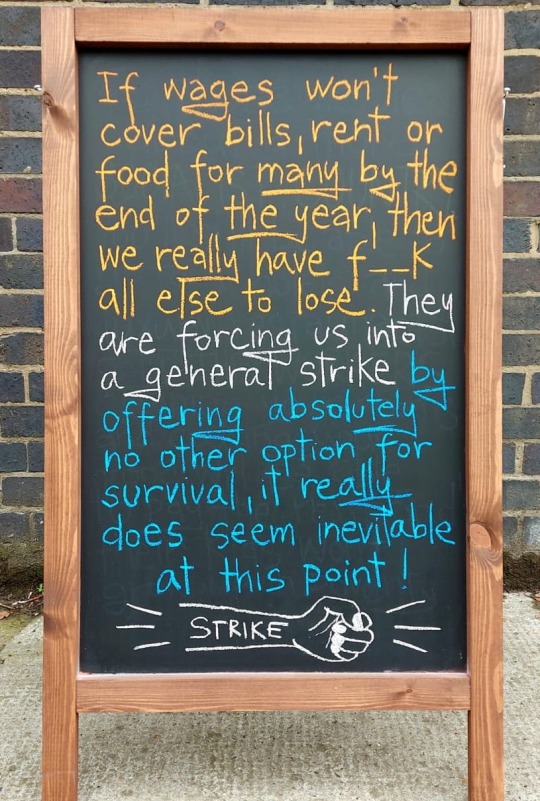 If wages won't
cover bills, rent or
food for many by the
end of the year, then
we really have f__k
all else to lose. They
are forcing us into
a general strike by
offering absolutely
no other option for
survival, it really
does seem inevitable
at this point!
STRIKE